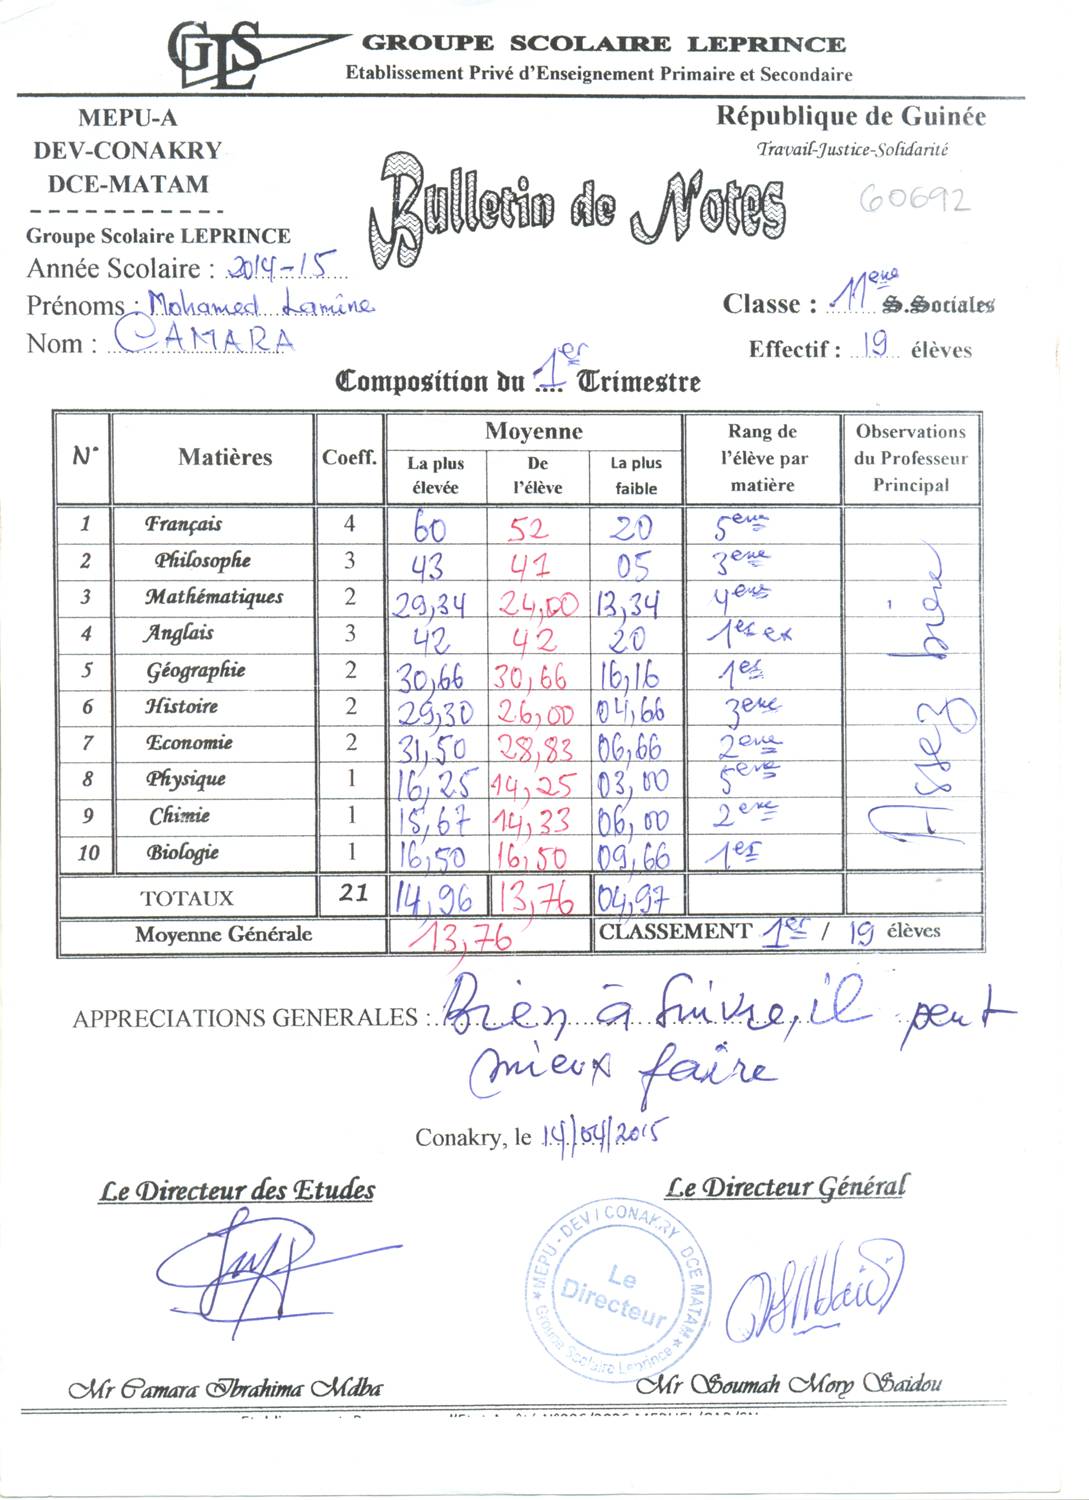 GLS GROUPE SCOLAIRE LEPRINCE
Etablissement Privé d'Enseignement Primaire et Secondaire
MEPU-A
DEV-CONAKRY
DCE-MATAM
République de Guinée
Travail-Justice-Solidarité
Bulletin de Notes
60692
Groupe Scolaire LEPRINCE
Année Scolaire : 2014-15
Prénoms : Mohamed Lamine
Nom : CAMARA
Classe : 11ème S.Sociales
Effectif : 19 élèves
Composition du 1er Trimestre
N° Matières Coeff. Moyenne Rang de l'élève par matière Observations du Professeur Principal
La plus élevée De l'élève La plus faible
1 Français 4 60 52 20 5eme
2 Philosophe 3 43 41 05 3eme
3 Mathématiques 2 29,34 24,00 13,34 4eme
4 Anglais 3 42 42 20 1er ex
5 Géographie 2 30,66 30,66 16,16 1er
6 Histoire 2 29,30 26,00 04,66 3eme
7 Economie 2 31,50 28,83 06,66 2eme
8 Physique 1 16,25 14,25 03,00 5eme
9 Chimie 1 15,67 14,33 06,00 2eme
10 Biologie 1 16,50 16,50 09,66 1er
Assez bien
TOTAUX 21 14,96 13,76 04,97
Moyenne Générale 13,76 CLASSEMENT 1er / 19 élèves
APPRECIATIONS GENERALES : Bien, à suivre, il peut
mieux faire
Conakry, le 14/04/2015
Le Directeur des Etudes
Le Directeur Général
MEPU - DEV / CONAKRY DCE MATAM
Le
Directeur
Groupe Scolaire Leprince
Mr Camara Ibrahima Mdba
Mr Soumah Mory Saidou